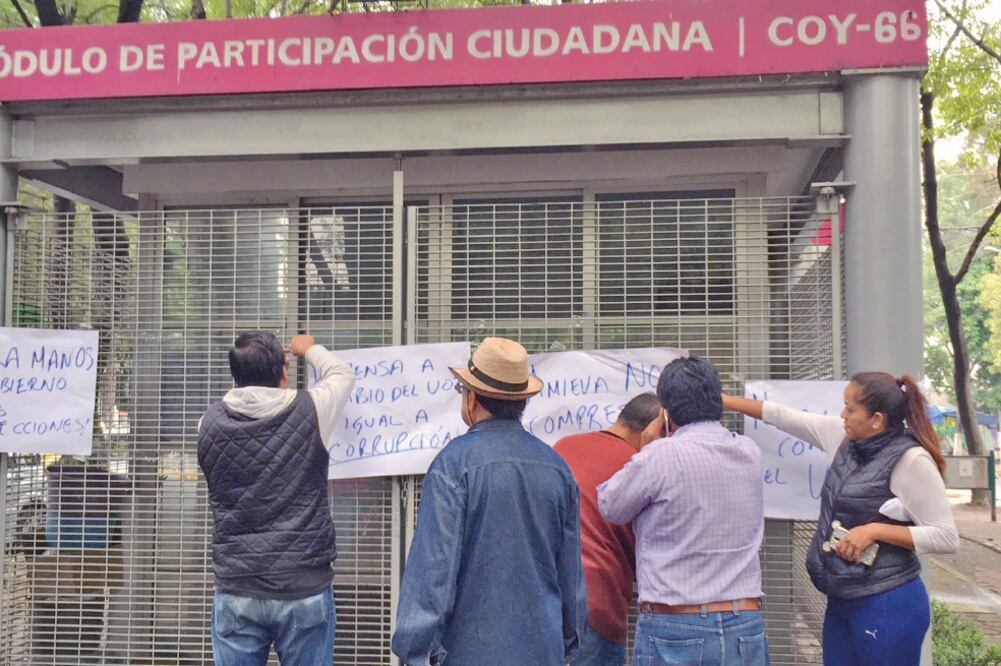 ÓDULO DE PARTICIPACIÓN CIUDADANA | COY-66
A MANOS
BIERNO
CCIONES!
ENSA A
BIO DEL VO
IGUAL A
CORRUPCIÓN
AMIEVA NO
COMPRE
N
CO
EL V